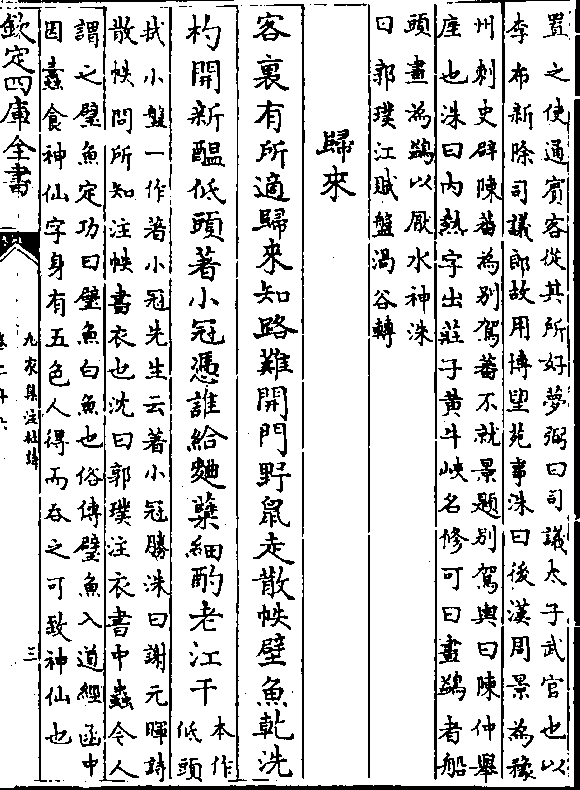 置之使通賓客從其所好夢弼曰司議太子武官也以
李布新除司議郎故用博望苑事洙曰後漢周景為豫
州刺史辟陳蕃為别駕蕃不就景題别駕輿曰陳仲舉
座也洙曰内熱字出莊子黄牛峽名修可曰畫鷁者船
頭畫為鷁以厭水神洙
曰郭璞江賦盤渦谷轉
歸來
客裏有所適歸來知路難開門野鼠走散帙壁魚乾洗
杓開新醖低頭著小冠憑誰給麯糵細酌老江干
本作
低頭
拭小盤一作著小冠先生云著小冠勝洙曰謝元暉詩
散帙問所知注帙書衣也沈曰郭璞注衣書中蟲令人
謂之壁魚定功曰壁魚白魚也俗傳壁魚入道經函中
因蠹食神仙字身有五色人得而吞之可致神仙也
欽定四庫全書
九家集注杜詩
三